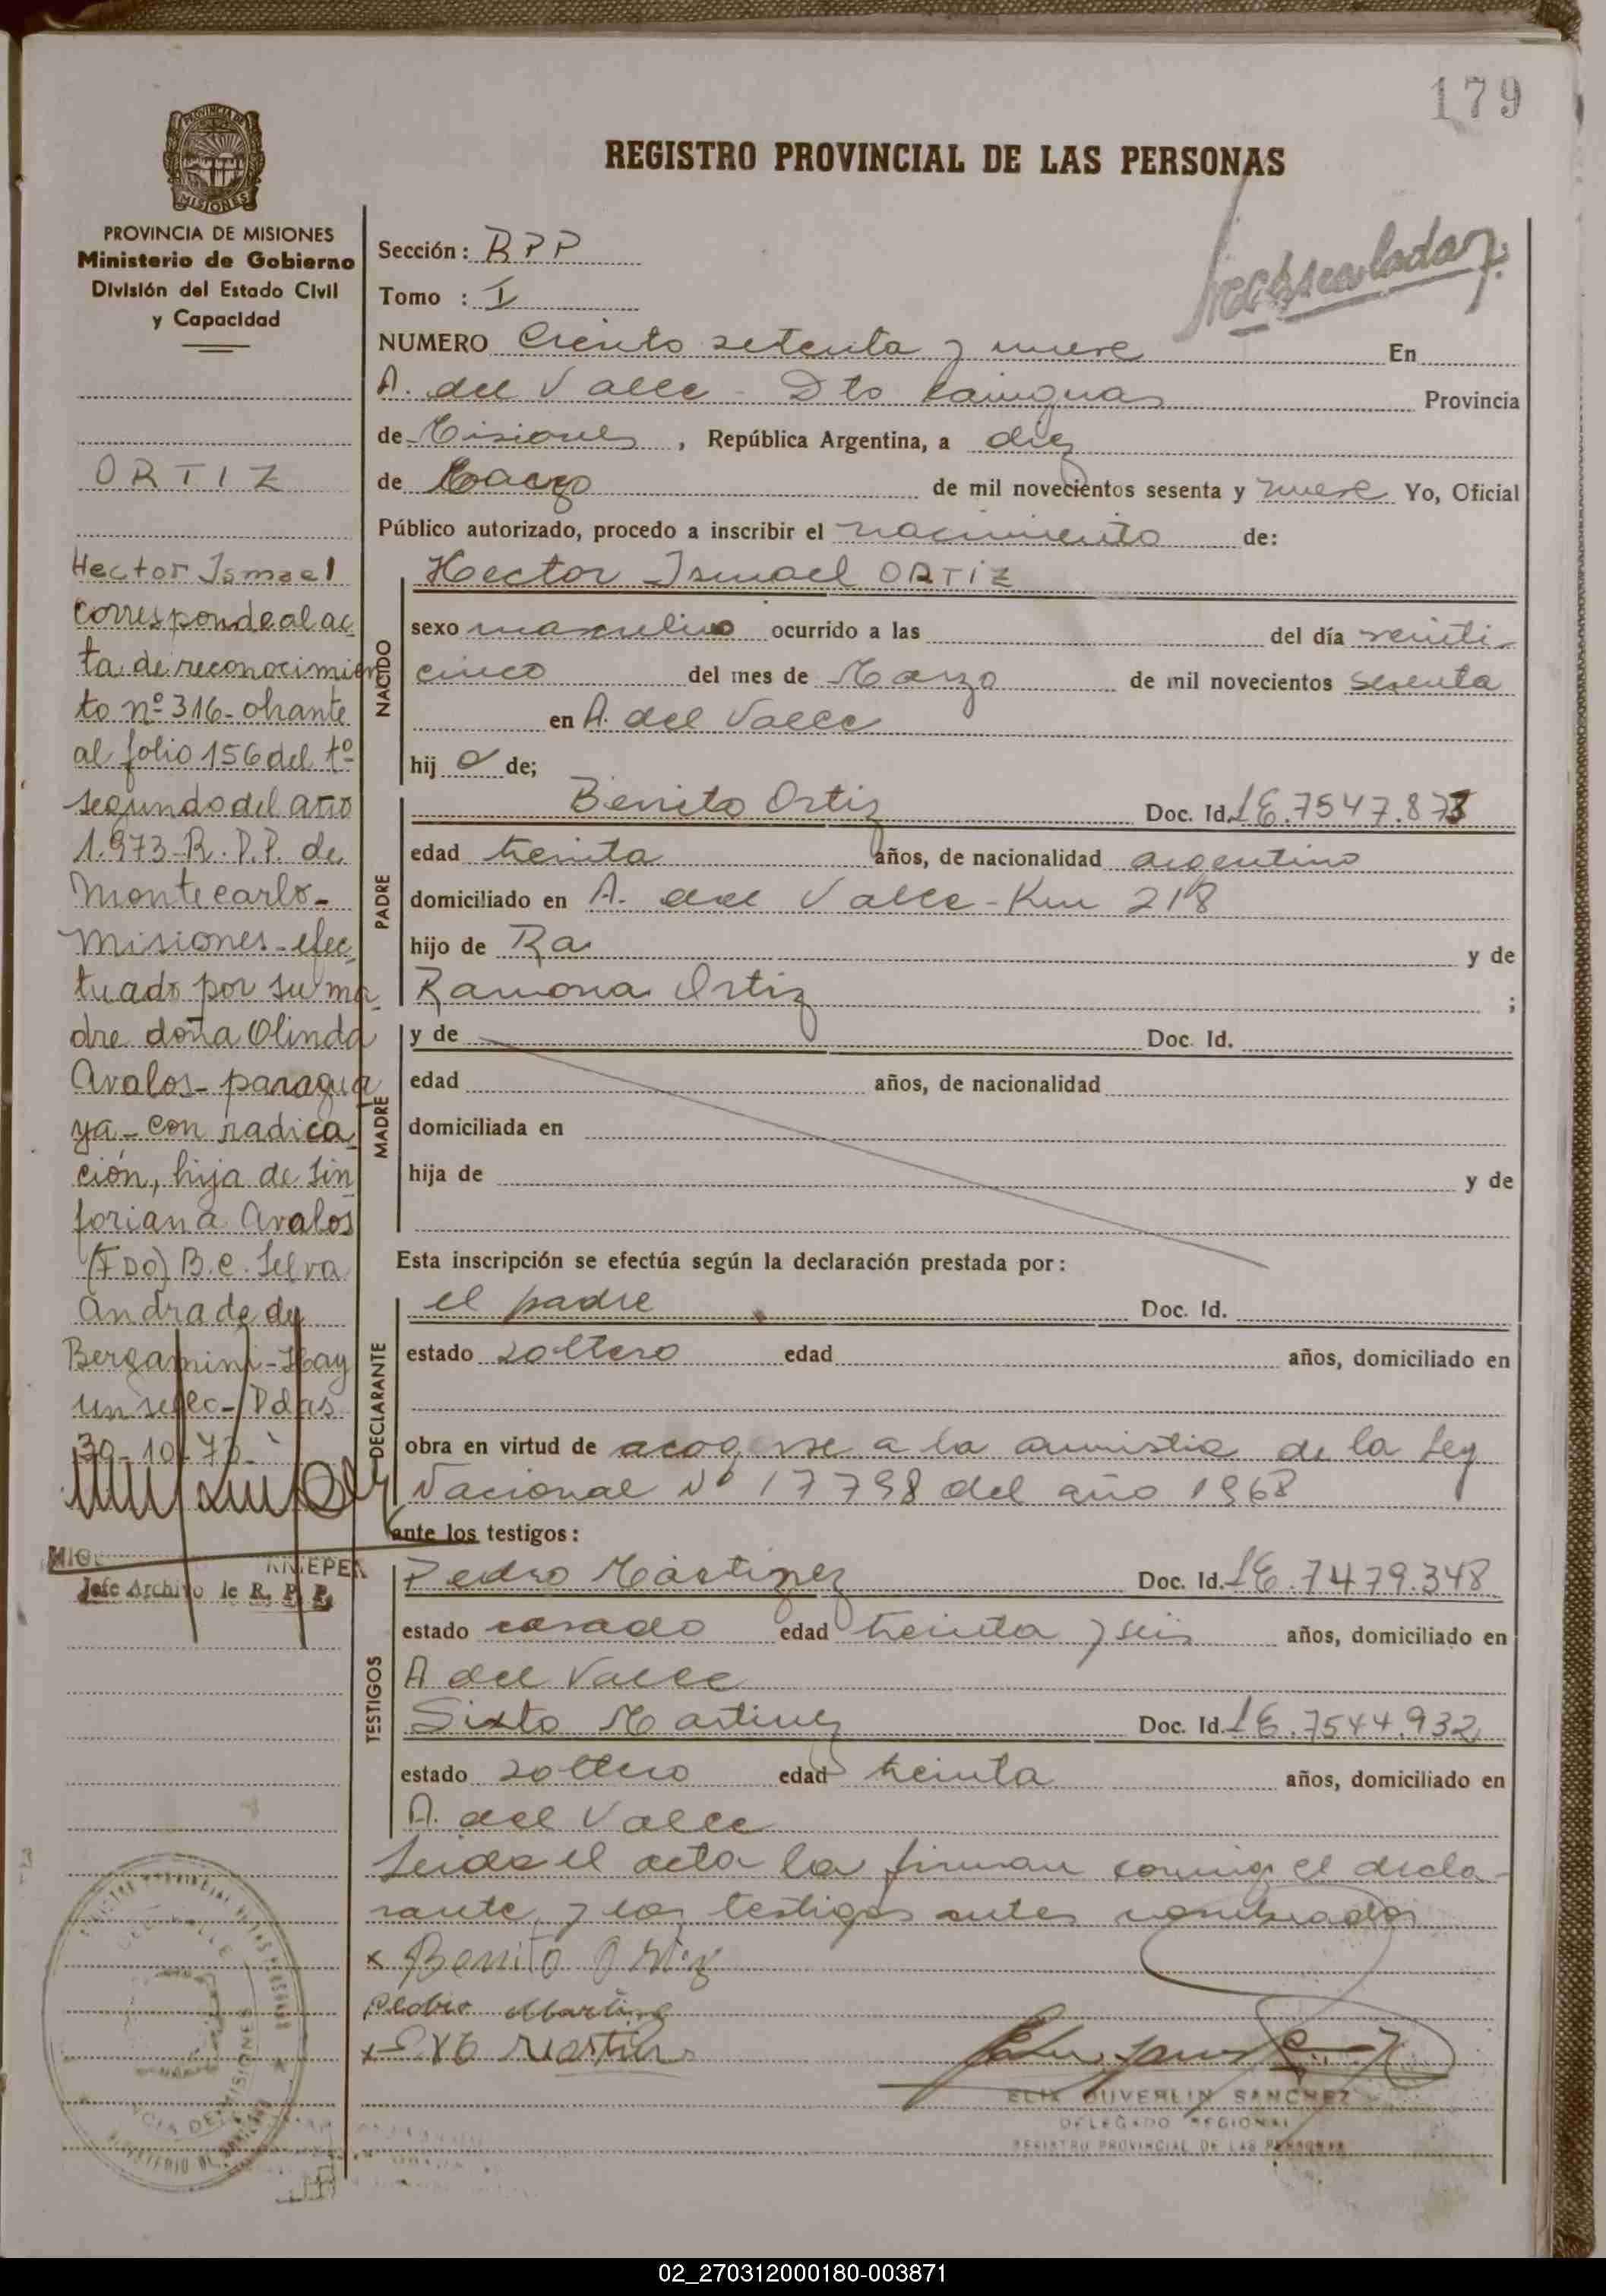 179
REGISTRO PROVINCIAL DE LAS PERSONAS
PROVINCIA DE MISIONES
Ministerio de Gobierno
División del Estado Civil
y Capacidad
ORTIZ
Hector Ismael
corresponde al ac
ta de reconocimien
to nº 316- obrante
al folio 156 del tº
segundo del año
1.973-R.P.P. de
Montecarlo-
Misiones-efec
tuado por su ma
dre doña Olinda
Avalos- paragua
ya-con radica
ción, hija de Sin
foriana Avalos
(FDO) B.C. Selva
Andrade de
Bergamini-Hay
un sello-Pdas
30-10-73-
Jefe Archivo de R. P. P.
Sección: RPP
Tomo : I
NUMERO Ciento setenta y nueve En
A. del Valle - Dto Cainguas Provincia
de Misiones, República Argentina, a diez
de Marzo de mil novecientos sesenta y nueve Yo, Oficial
Público autorizado, procedo a inscribir el nacimiento de:
NACIDO
Hector Ismael ORTIZ
sexo masculino ocurrido a las del día veinti-
cinco del mes de Marzo de mil novecientos sesenta
en A. del Valle
hij o de;
PADRE
Benito Ortiz Doc. Id. LE.7547.873
edad treinta años, de nacionalidad argentino
domiciliado en A. del Valle - Km 218
hijo de Ra y de
Ramona Ortiz ;
MADRE
y de Doc. Id.
edad años, de nacionalidad
domiciliada en
hija de y de
Esta inscripción se efectúa según la declaración prestada por:
DECLARANTE
el padre Doc. Id.
estado soltero edad años, domiciliado en
obra en virtud de acogerse a la amnistia de la Ley
Nacional Nº 17798 del año 1968
ante los testigos:
TESTIGOS
Pedro Martinez Doc. Id. LE.7479.348
estado casado edad treinta y seis años, domiciliado en
A del Valle
Sixto Martinez Doc. Id. LE.7544.932
estado soltero edad treinta años, domiciliado en
A. del Valle
Leida el acta la firman conmigo el decla-
rante y los testigos antes nombrados
x Benito Ortiz
Pedro Martinez
ELIX OUVERLIN SANCHEZ
DELEGADO REGIONAL
REGISTRO PROVINCIAL DE LAS PERSONAS
02_270312000180-003871